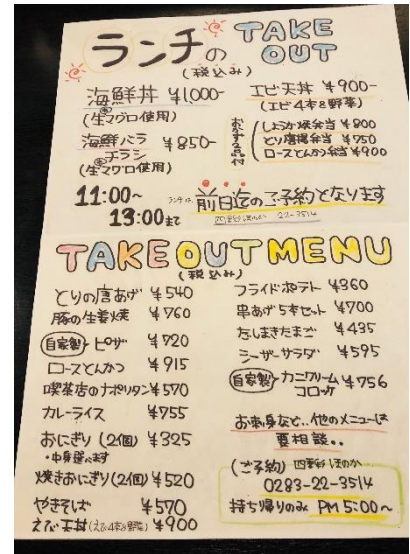 ランチの TAKE OUT
(税込み)
海鮮丼 ¥1,000-
(生マグロ使用)
海鮮バラチラシ ¥850-
(生マグロ使用)
エビ天丼 ¥900-
(エビ4本&野菜)
しょうが焼弁当 ¥800
とり唐揚弁当 ¥750
ロースとんかつ弁当 ¥900
11:00~
13:00まで
ランチは、前日迄のご予約となります
四季彩ほのか 22-3514
TAKEOUT MENU
(税込み)
とりの唐あげ ¥540
豚の生姜焼 ¥760
自家製 ピザ ¥720
ロースとんかつ ¥915
喫茶店のナポリタン ¥570
カレーライス ¥755
おにぎり(2個) ¥325
・中身選べます
焼きおにぎり(2個) ¥520
やきそば ¥570
えび天丼(えび4本&野菜) ¥900
フライドポテト ¥360
串あげ5本セット ¥700
だしまきたまご ¥435
シーザーサラダ ¥595
自家製 カニクリームコロッケ ¥756
お刺身など..他のメニューは
要相談..
(ご予約) 四季彩ほのか
0283-22-3514
持ち帰りのみ PM 5:00~